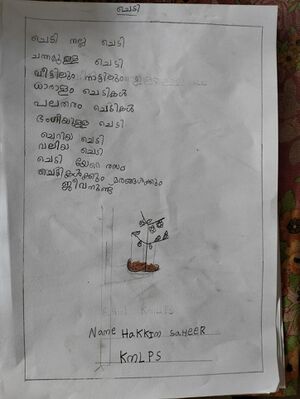 ചെടി
ചെടി നല്ല ചെടി
ചന്തമുള്ള ചെടി
വീട്ടിലും നാട്ടിലും
ധാരാളം ചെടികൾ
പലതരം ചെടികൾ
ഭംഗിയുള്ള ചെടി
ചെറിയ ചെടി
വലിയ ചെടി
ചെടി നല്ല
ചെടികൾക്കും മരങ്ങൾക്കും
ജീവനുണ്ട്
Name Hakkim Saheer
KMLPS